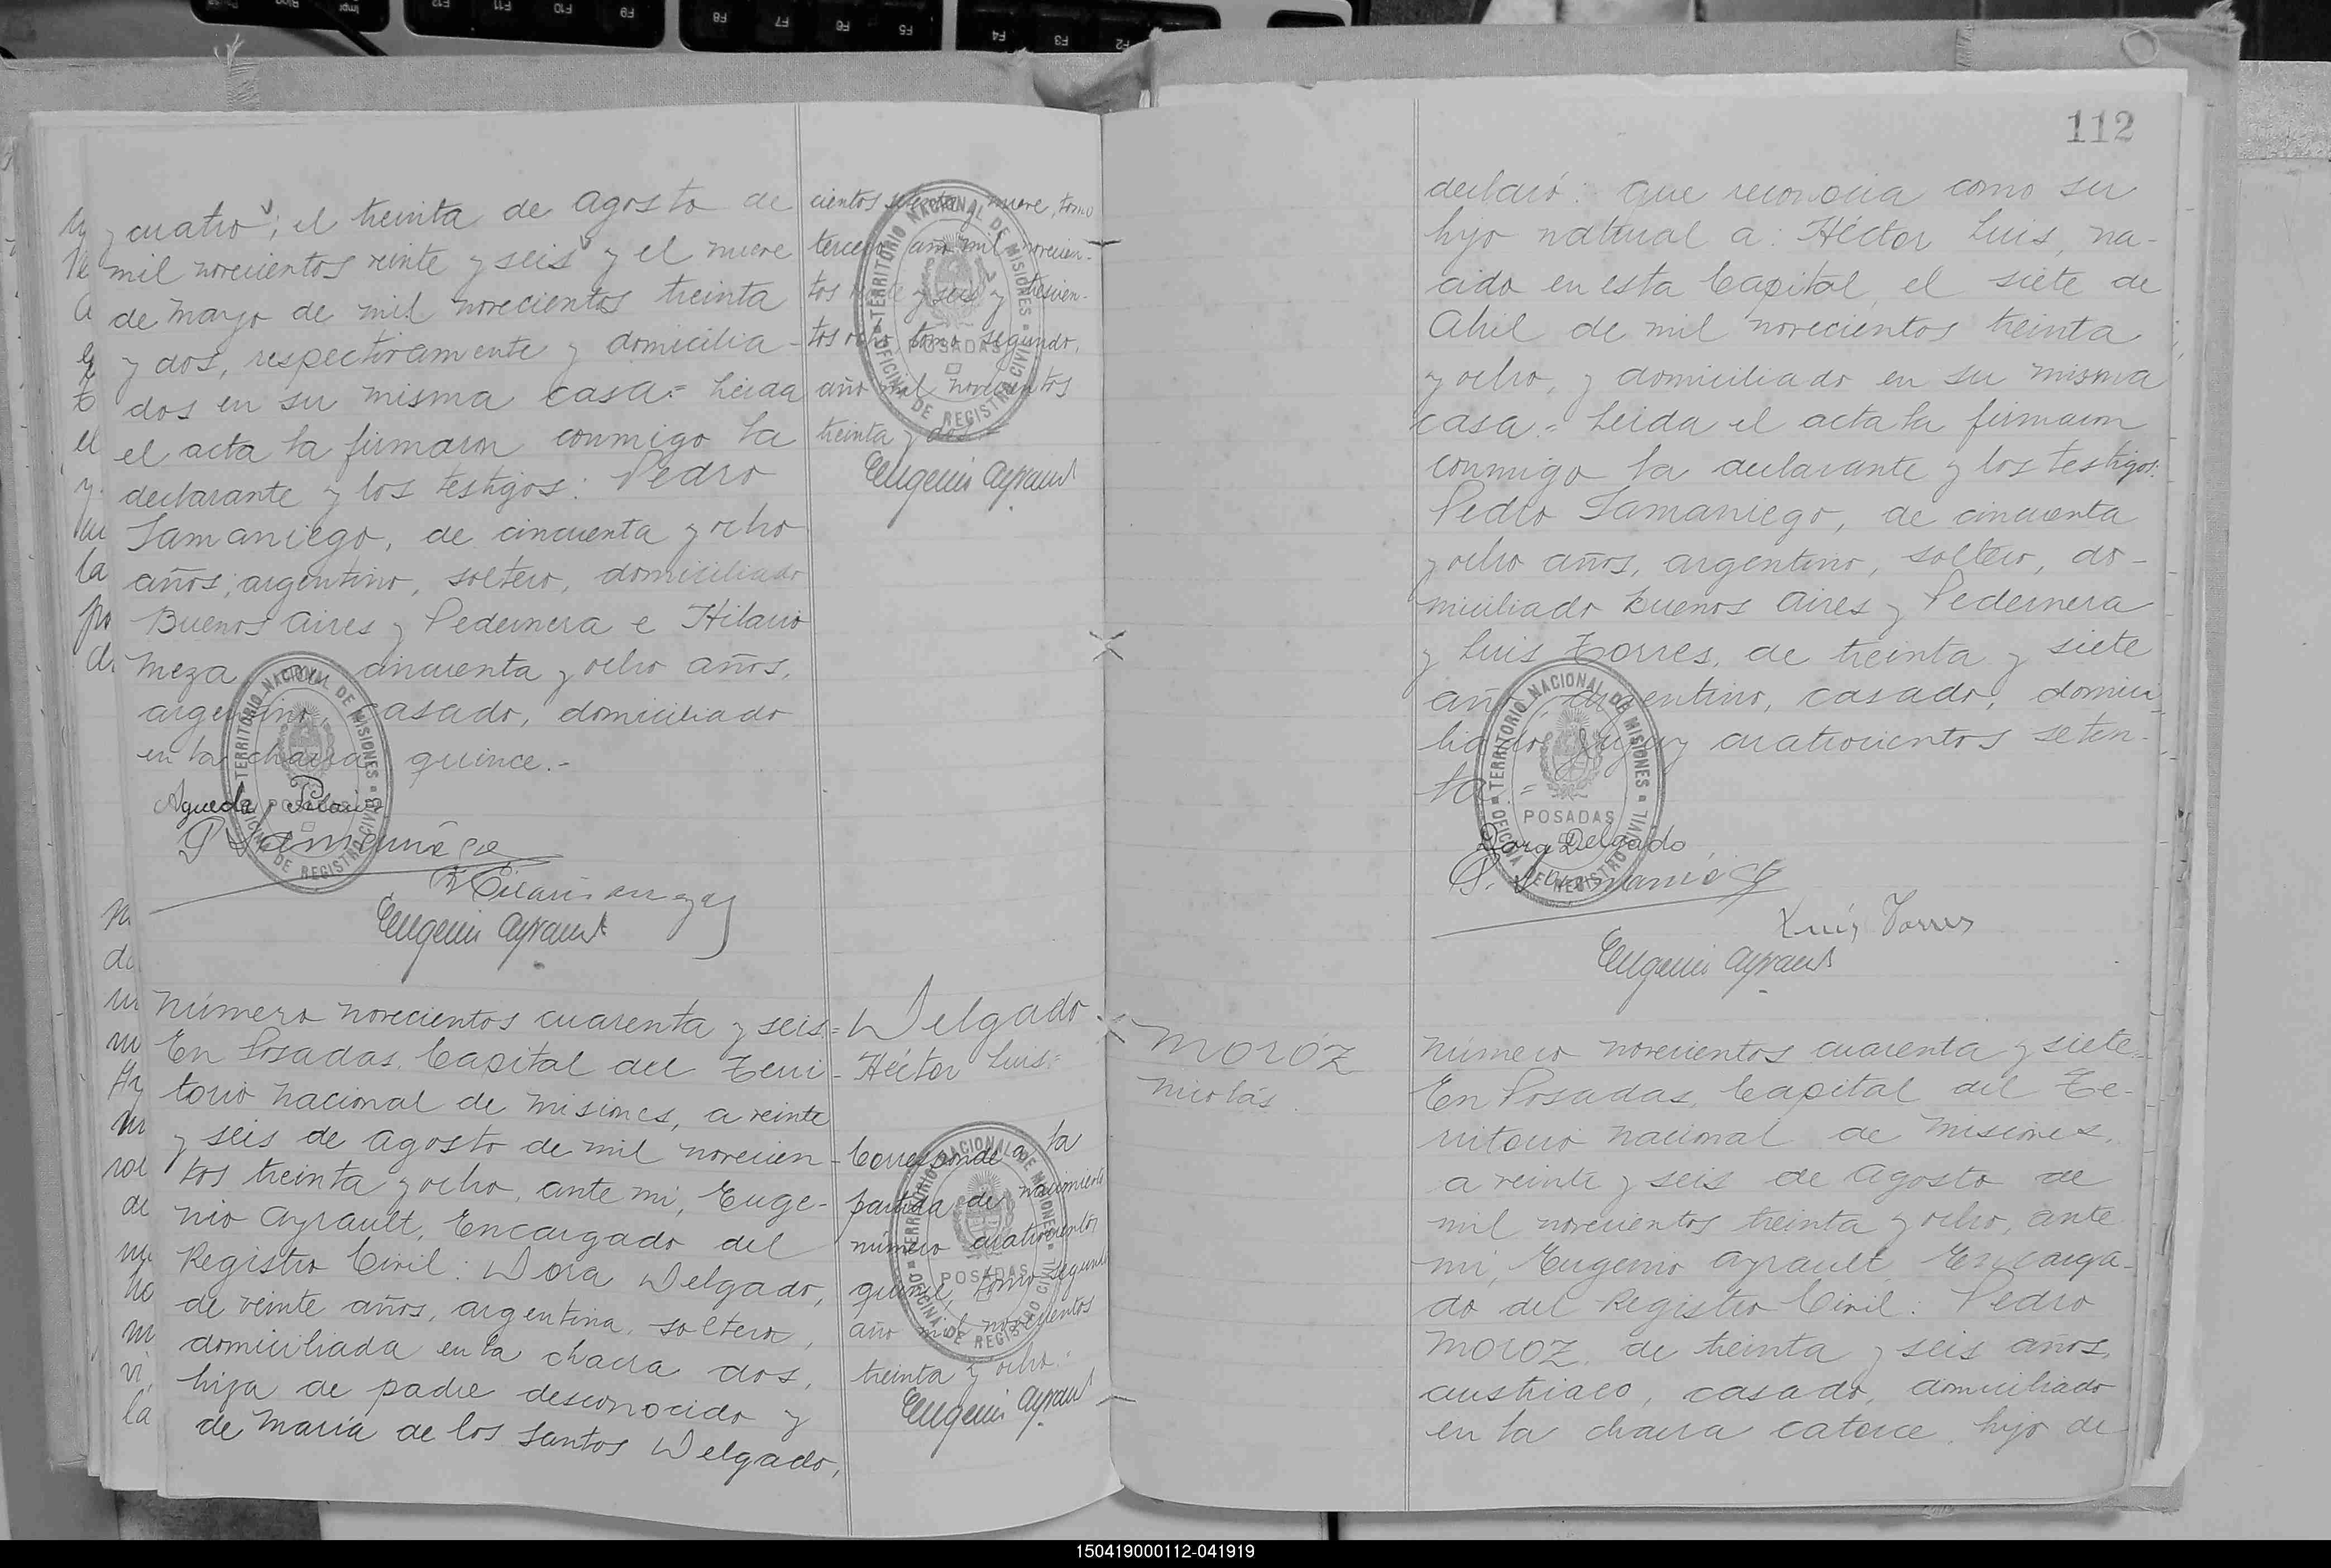 y cuatro; el treinta de Agosto de
mil novecientos veinte y seis y el nueve
de Mayo de mil novecientos treinta
y dos, respectivamente y domicilia-
dos en su misma casa.= Leida
el acta la firmaron conmigo la
declarante y los testigos: Pedro
Samaniego, de cincuenta y ocho
años, argentino, soltero, domiciliado
Buenos Aires y Pedernera e Hilario
Meza, cincuenta y ocho años,
argentino, casado, domiciliado
en la chacra quince.-
Agueda
P. Samaniego
Eugenio Ayrault
TERRITORIO NACIONAL DE MISIONES
POSADAS
OFICINA DE REGISTRO CIVIL
cientos nueve, tomo
tercero año mil novecien-
tos veinte y seis y trescien-
tos ocho, tomo segundo,
año mil novecientos
treinta y dos.=
Eugenio Ayrault
TERRITORIO NACIONAL DE MISIONES
POSADAS
OFICINA DE REGISTRO CIVIL
Número novecientos cuarenta y seis=
En Posadas, Capital del Terri-
torio Nacional de Misiones, a veinte
y seis de Agosto de mil novecien-
tos treinta y ocho, ante mi, Euge-
nio Ayrault, Encargado del
Registro Civil: Dora Delgado,
de veinte años, argentina, soltera,
domiciliada en la chacra dos,
hija de padre desconocido y
de María de los Santos Delgado,
Delgado
Héctor Luis=
Corresponde a la
partida de nacimiento
número cuatrocientos
quince, tomo segundo
año mil novecientos
treinta y ocho.-
Eugenio Ayrault
TERRITORIO NACIONAL DE MISIONES
POSADAS
OFICINA DE REGISTRO CIVIL
112
declaró: que reconocia como su
hijo natural a: Héctor Luis, na-
cido en esta Capital, el siete de
Abril de mil novecientos treinta
y ocho, y domiciliado en su misma
casa.= Leida el acta la firmaron
conmigo la declarante y los testigos:
Pedro Samaniego, de cincuenta
y ocho años, argentino, soltero, do-
miciliado Buenos Aires y Pedernera
y Luis Torres, de treinta y siete
años, argentino, casado, domici-
liado Jujuy cuatrocientos seten-
ta.=
Dora Delgado
P. Samaniego
Luis Torres
Eugenio Ayrault
TERRITORIO NACIONAL DE MISIONES
POSADAS
OFICINA DE REGISTRO CIVIL
Moroz
Nicolás
Número novecientos cuarenta y siete=
En Posadas, Capital del Te-
rritorio Nacional de Misiones,
a veinte y seis de Agosto de
mil novecientos treinta y ocho, ante
mi, Eugenio Ayrault, Encarga-
do del Registro Civil: Pedro
Moroz, de treinta y seis años,
austriaco, casado, domiciliado
en la chacra catorce, hijo de
150419000112-041919